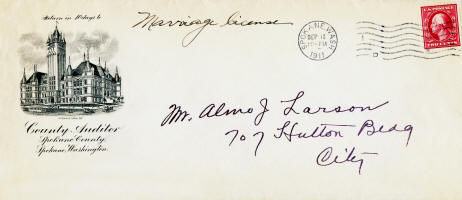 Return in 10 days to
Marriage license
SPOKANE, WASH.
SEP
1911
U.S. POSTAGE
TWO CENTS
County Auditor
Spokane County,
Spokane, Washington.
Mr. Almo J Larson
707 Hutton Bldg
City